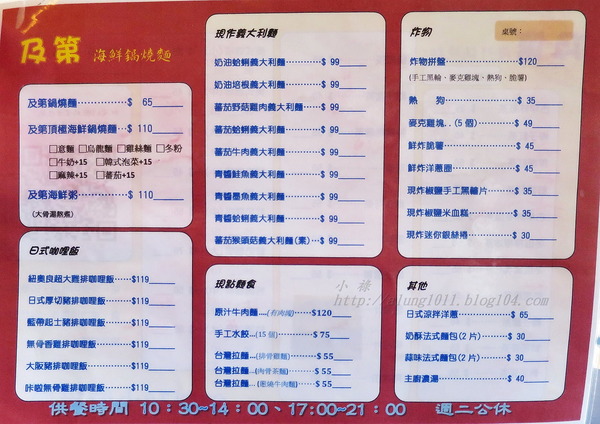 及第 海鮮鍋燒麵
及第鍋燒麵‥‥‥‥‥$ 65
及第頂極海鮮鍋燒麵‥$ 110
□意麵 □烏龍麵 □雞絲麵 □冬粉
□牛奶+15 □韓式泡菜+15
□麻辣+15 □蕃茄+15
及第海鮮粥‥‥‥‥‥$ 110
(大骨湯熬煮)
日式咖哩飯
紐奧良超大雞排咖哩飯‥‥$119
日式厚切豬排咖哩飯‥‥‥$119
藍帶起士豬排咖哩飯‥‥‥$119
無骨香雞排咖哩飯‥‥‥‥$119
大阪豬排咖哩飯‥‥‥‥‥$119
咔啦無骨雞排咖哩飯‥‥‥$119
現作義大利麵
奶油蛤蜊義大利麵‥‥‥‥$ 99
奶油培根義大利麵‥‥‥‥$ 99
蕃茄野菇雞肉義大利麵‥‥$ 99
蕃茄蛤蜊義大利麵‥‥‥‥$ 99
蕃茄牛肉義大利麵‥‥‥‥$ 99
青醬鮭魚義大利麵‥‥‥‥$ 99
青醬墨魚義大利麵‥‥‥‥$ 99
青醬蛤蜊義大利麵‥‥‥‥$ 99
蕃茄猴頭菇義大利麵(素)‥$ 99
現點麵食
原汁牛肉麵‥‥(有肉塊) $120
手工水餃‥‥(15 個)‥‥‥$ 75
台灣拉麵‥‥(排骨雞麵)‥‥$ 55
台灣拉麵‥‥(肉骨茶麵)‥‥$ 55
台灣拉麵‥‥(蔥燒牛肉麵)‥$ 55
炸物
桌號：
炸物拼盤‥‥‥‥‥‥‥$120
(手工黑輪、麥克雞塊、熱狗、脆薯)
熱 狗‥‥‥‥‥‥‥$ 35
麥克雞塊‥(5 個)‥‥‥$ 49
鮮炸脆薯‥‥‥‥‥‥‥$ 45
鮮炸洋蔥圈‥‥‥‥‥‥$ 45
現炸椒鹽手工黑輪片‥‥$ 35
現炸椒鹽米血糕‥‥‥‥$ 35
現炸迷你銀絲捲‥‥‥‥$ 30
其他
日式涼拌洋蔥‥‥‥‥‥$ 65
奶酥法式麵包(2 片)‥‥$ 30
蒜味法式麵包(2 片)‥‥$ 30
主廚濃湯‥‥‥‥‥‥‥$ 40
供餐時間 10：30~14：00、17:00~21：00 週二公休